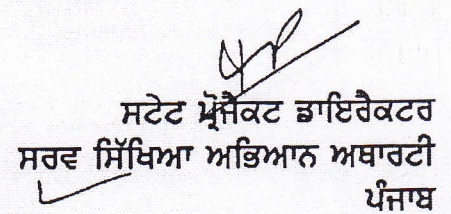 ਸਟੇਟ ਪ੍ਰੋਜੈਕਟ ਡਾਇਰੈਕਟਰ
ਸਰਵ ਸਿੱਖਿਆ ਅਭਿਆਨ ਅਥਾਰਟੀ
ਪੰਜਾਬ